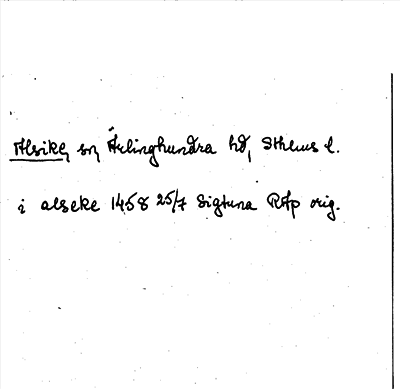 Alsike, sn, Ärlinghundra hd, Sthlms l.
i alseke 1458 25/7 Sigtuna RAp orig.